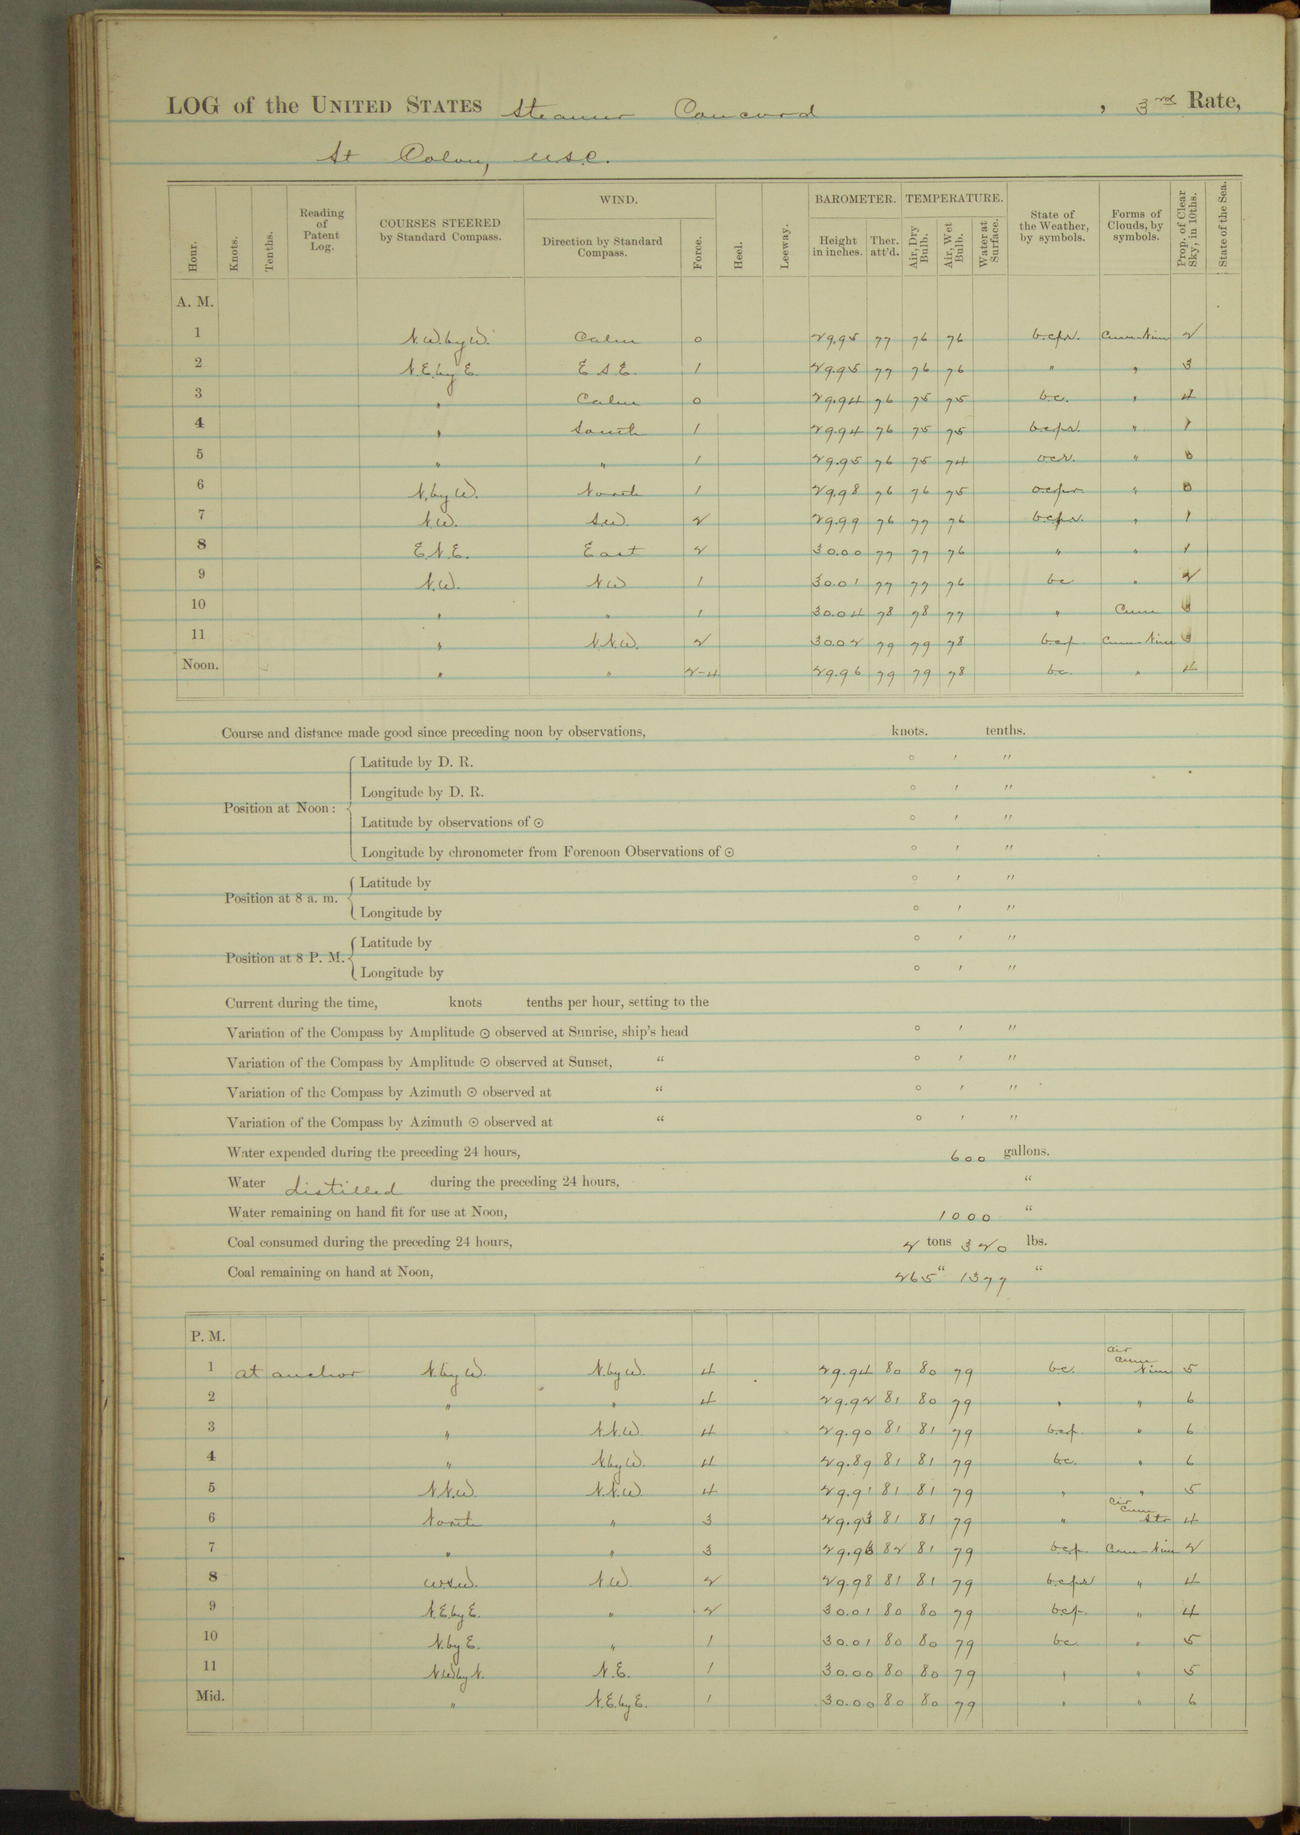 LOG of the UNITED STATES Steamer Concord, 3rd Rate,
At Colon, U.S.C.
Hour. Knots. Tenths. Reading of Patent Log. COURSES STEERED by Standard Compass. WIND. Direction by Standard Compass. Force. Heel. Leeway. BAROMETER. Height in inches. Ther. att'd. TEMPERATURE. Air, Dry Bulb. Air, Wet Bulb. Water at Surface. State of the Weather, by symbols. Forms of Clouds, by symbols. Prop. of Clear Sky, in 10ths. State of the Sea.
A. M.
1 N.W. by W. Calm 0 29.95 77 76 76 b.c.p.r. Cum-Nim 2
2 N.E. by E. E.S.E. 1 29.95 77 76 76 " " 3
3 " Calm 0 29.94 76 75 75 b.c. " 4
4 " South 1 29.94 76 75 75 b.c.p.r. " 1
5 " " 1 29.95 76 75 74 o.c.r. " 0
6 N. by W. North 1 29.98 76 76 75 o.c.p.r. " 0
7 N.W. S.W. 2 29.99 76 77 76 b.c.p.r. " 1
8 E.N.E. East 2 30.00 77 77 76 " " 1
9 N.W. N.W. 1 30.01 77 77 76 b.c " 2
10 " " 1 30.04 78 78 77 " Cum 3
11 " N.N.W. 2 30.02 79 79 78 b.c.p. Cum-Nim 3
Noon. " " 2-4 29.96 79 79 78 b.c. " 4
Course and distance made good since preceding noon by observations, knots. tenths.
Position at Noon: Latitude by D. R. ° ′ ″
Longitude by D. R. ° ′ ″
Latitude by observations of ☉ ° ′ ″
Longitude by chronometer from Forenoon Observations of ☉ ° ′ ″
Position at 8 a. m. Latitude by ° ′ ″
Longitude by ° ′ ″
Position at 8 P. M. Latitude by ° ′ ″
Longitude by ° ′ ″
Current during the time, knots tenths per hour, setting to the
Variation of the Compass by Amplitude ☉ observed at Sunrise, ship's head ° ′ ″
Variation of the Compass by Amplitude ☉ observed at Sunset, “ ° ′ ″
Variation of the Compass by Azimuth ☉ observed at “ ° ′ ″
Variation of the Compass by Azimuth ☉ observed at “ ° ′ ″
Water expended during the preceding 24 hours, 600 gallons.
Water distilled during the preceding 24 hours, “
Water remaining on hand fit for use at Noon, 1000 “
Coal consumed during the preceding 24 hours, 2 tons 320 lbs.
Coal remaining on hand at Noon, 265 “ 1377 “
P. M.
1 at anchor N. by W. N. by W. 4 29.94 80 80 79 b.c. Cir Cum Nim 5
2 " " 4 29.92 81 80 79 " " 6
3 " N.N.W. 4 29.90 81 81 79 b.c.p. " 6
4 " N. by W. 4 29.89 81 81 79 b.c. " 6
5 N.N.W. N.N.W. 4 29.91 81 81 79 " " 5
6 North " 3 29.93 81 81 79 " Cir Cum Str 4
7 " " 3 29.96 82 81 79 b.c.p. Cum-Nim 2
8 W.S.W. N.W. 2 29.98 81 81 79 b.c.p.r " 4
9 N.E. by E. " 2 30.01 80 80 79 b.c.p. " 4
10 N. by E. " 1 30.01 80 80 79 b.c. " 5
11 N.W. by N. N.E. 1 30.00 80 80 79 " " 5
Mid. " N.E. by E. 1 30.00 80 80 79 " " 6